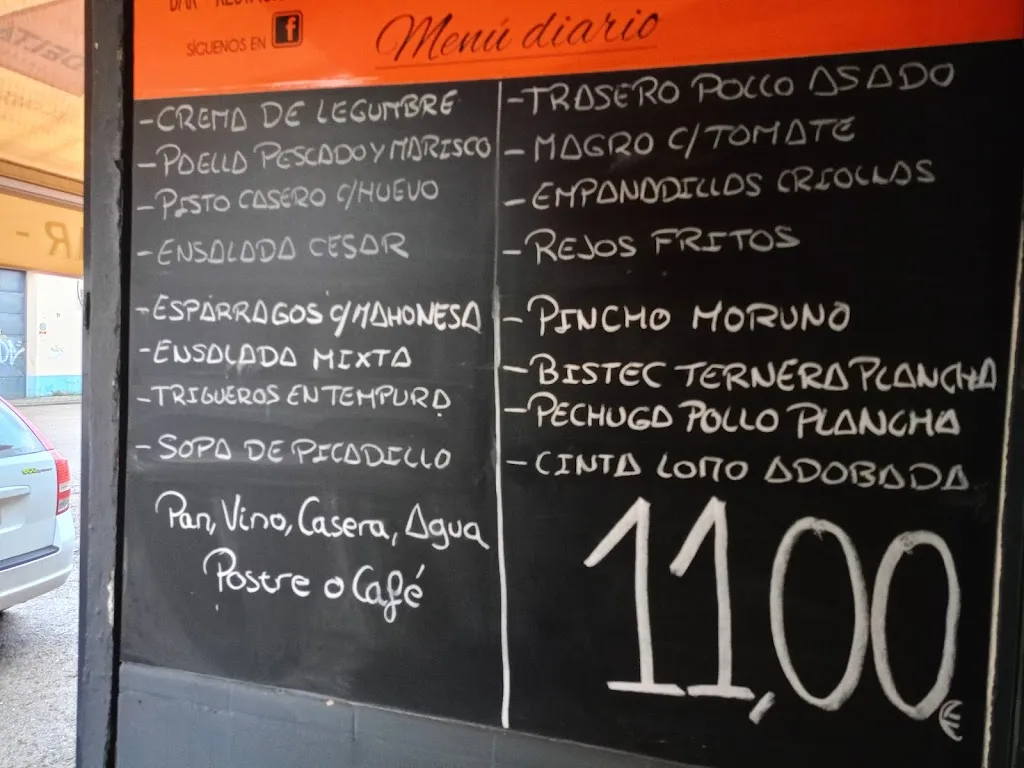 BAR - RESTAU
SÍGUENOS EN f
Menú diario
-CREMA DE LEGUMBRE
-PAELLA PESCADO Y MARISCO
-PISTO CASERO C/HUEVO
-ENSALADA CESAR
-ESPÁRRAGOS C/MAHONESA
-ENSALADA MIXTA
-TRIGUEROS EN TEMPURA
-SOPA DE PICADILLO
Pan, Vino, Casera, Agua
Postre o Café
-TRASERO POLLO ASADO
-MAGRO C/TOMATE
-EMPANADILLAS CRIOLLAS
-REJOS FRITOS
-PINCHO MORUNO
-BISTEC TERNERA PLANCHA
-PECHUGA POLLO PLANCHA
-CINTA LOMO ADOBADA
11,00€